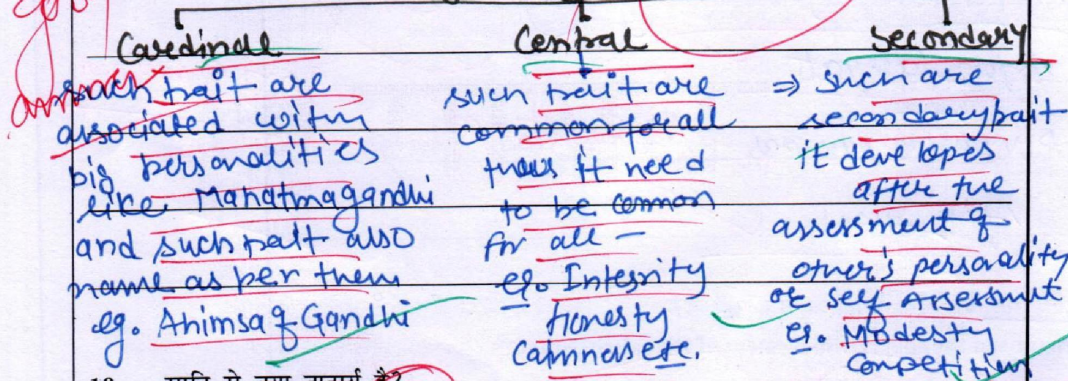 Cardinal
such trait are
associated with
big personalities
like Mahatmagandhi
and such trait also
name as per them
eg. Ahimsa of Gandhi
Central
such trait are
common for all
it need
to be common
for all –
eg. Integrity
Honesty
Calmness etc.
Secondary
⇒ such are
secondary trait
it develops
after the
assessment of
other's personality
or self Assessment
eg. Modesty
Competition